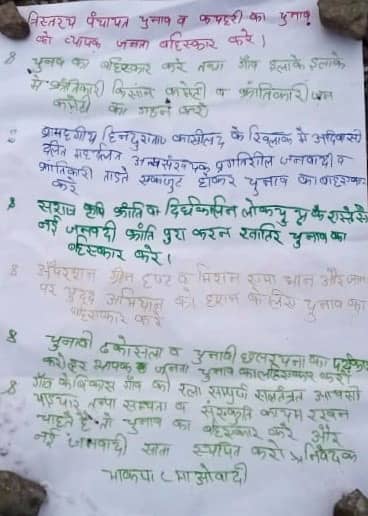 त्रिस्तरीय पंचायत चुनाव व कचहरी का चुनाव
को व्यापक जनता बहिस्कार करे।
8 चुनाव का बहिस्कार करे तथा गाँव इलाके इलाके
में क्रांतिकारी किसान कमेटी व क्रांतिकारी जन
कमेटी का गठन करो
हिन्दुत्ववादी फासीवाद के खिलाफ में आदिवासी
दलित अल्पसंख्यक प्रगतिशील जनवादी व
क्रांतिकारी ताकते एकजुट होकर चुनाव का बहिस्कार
करे
8 सशस्त्र कृषि क्रांति व दिर्घकालिन लोकयुद्ध के रास्ते से
नई जनवादी क्रांति पुरा करने खातिर चुनाव का
बहिस्कार करे।
8 ऑपरेशन ग्रीन हण्ट व मिशन और जनता
पर युद्ध अभियान को के लिए चुनाव का
बहिस्कार करे
8 चुनावी ढकोसला व चुनावी छलरचना का
करो हर व्यापक जनता चुनाव का बहिस्कार करो
8 गाँव के विकास गाँव की रक्षा सम्पुर्ण आपसी
भाईचारे तथा सभ्यता व संस्कृति कायम रखना
चाहते है तो चुनाव का बहिस्कार करे और
नई जनवादी सत्ता स्थापित करो निवेदक
भाकपा (माओवादी)